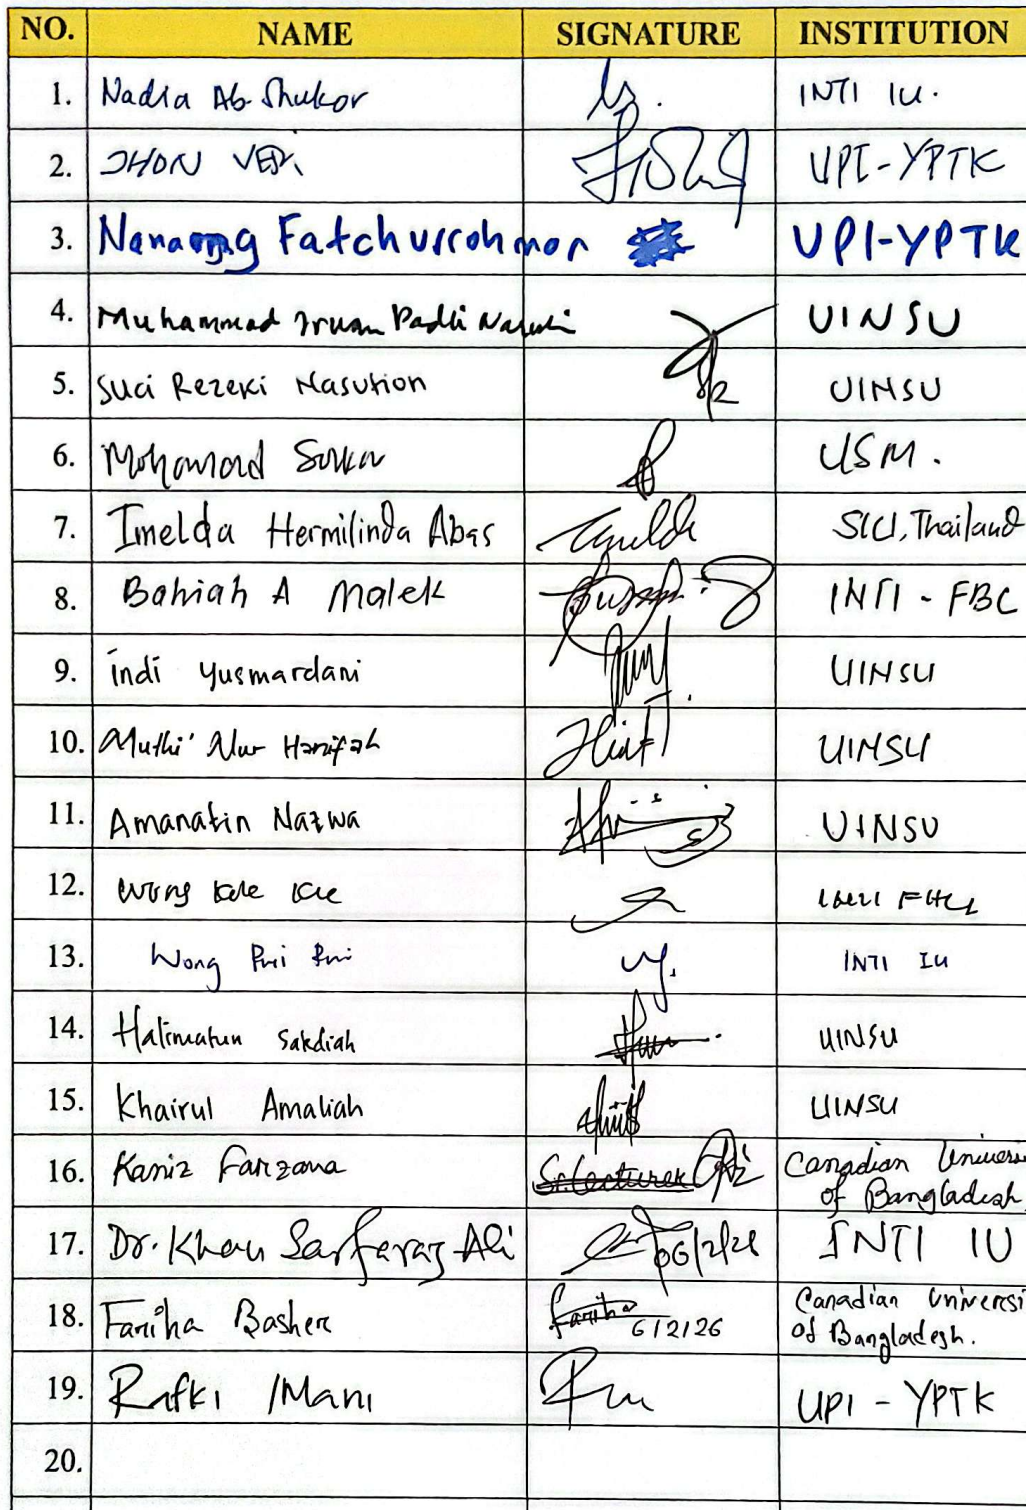 NO. NAME SIGNATURE INSTITUTION
1. Nadia Ab Shukor INTI IU.
2. JHON VERI UPI-YPTK
3. Nanang Fatchurrohman UPI-YPTK
4. Muhammad Irwan Padli Nasution UINSU
5. Suci Rezeki Nasution UINSU
6. Mohamad USM.
7. Imelda Hermilinda Abas Imelda SICU, Thailand
8. Bahiah A Malek INTI - FBC
9. indi yusmardani UINSU
10. Muthi' Nur Hanifah UINSU
11. Amanatin Nazwa UINSU
12. Wong
13. Wong INTI IU
14. Halimatun Sakdiah UINSU
15. Khairul Amaliah UINSU
16. Kaniz Farzana Sr. Lecturer Canadian Univers
of Bangladesh
17. Dr. Khan Sarfaraz Ali 06/2/26 INTI IU
18. Fariha Basher Fariha 6/2/26 Canadian Universi
of Bangladesh.
19. Rafki IMani UPI - YPTK
20.